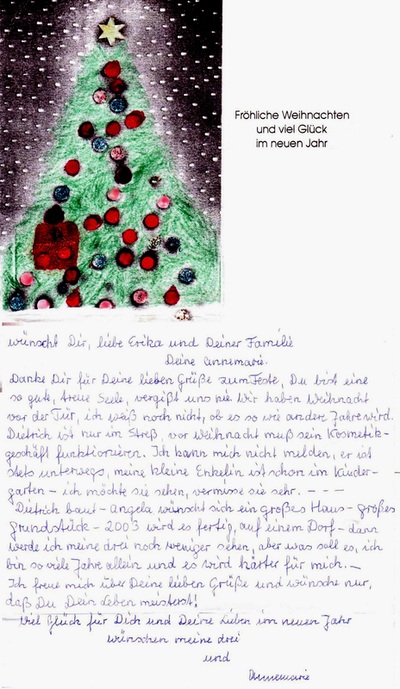 Fröhliche Weihnachten
und viel Glück
im neuen Jahr
wünscht Dir, liebe Erika und Deiner Familie
Deine Annemarie.
Danke Dir für Deine lieben Grüße zum Feste, Du bist eine
so gute, treue Seele, vergißt uns nie wir haben Weihnacht
vor der Tür, ich weiß noch nicht, ob es so wie andere Jahre wird.
Dietrich ist nur im Streß, vor Weihnacht muß sein Kosmetik-
geschäft funktionieren. Ich kann mich nicht melden, er ist
stets unterwegs, meine kleine Enkelin ist schon im Kinder-
garten – ich möchte sie sehen, vermisse sie sehr. – – –
Dietrich baut – Angela wünscht sich ein großes Haus – großes
Grundstück – 2003 wird es fertig, auf einem Dorf – dann
werde ich meine drei noch weniger sehen, aber was soll es, ich
bin so viele Jahre allein und es wird härter für mich. –
Ich freue mich über Deine lieben Grüße und wünsche nur,
daß Du Dein Leben meisterst!
Viel Glück für Dich und Deine Lieben im neuen Jahr
wünschen meine drei
und
Annemarie